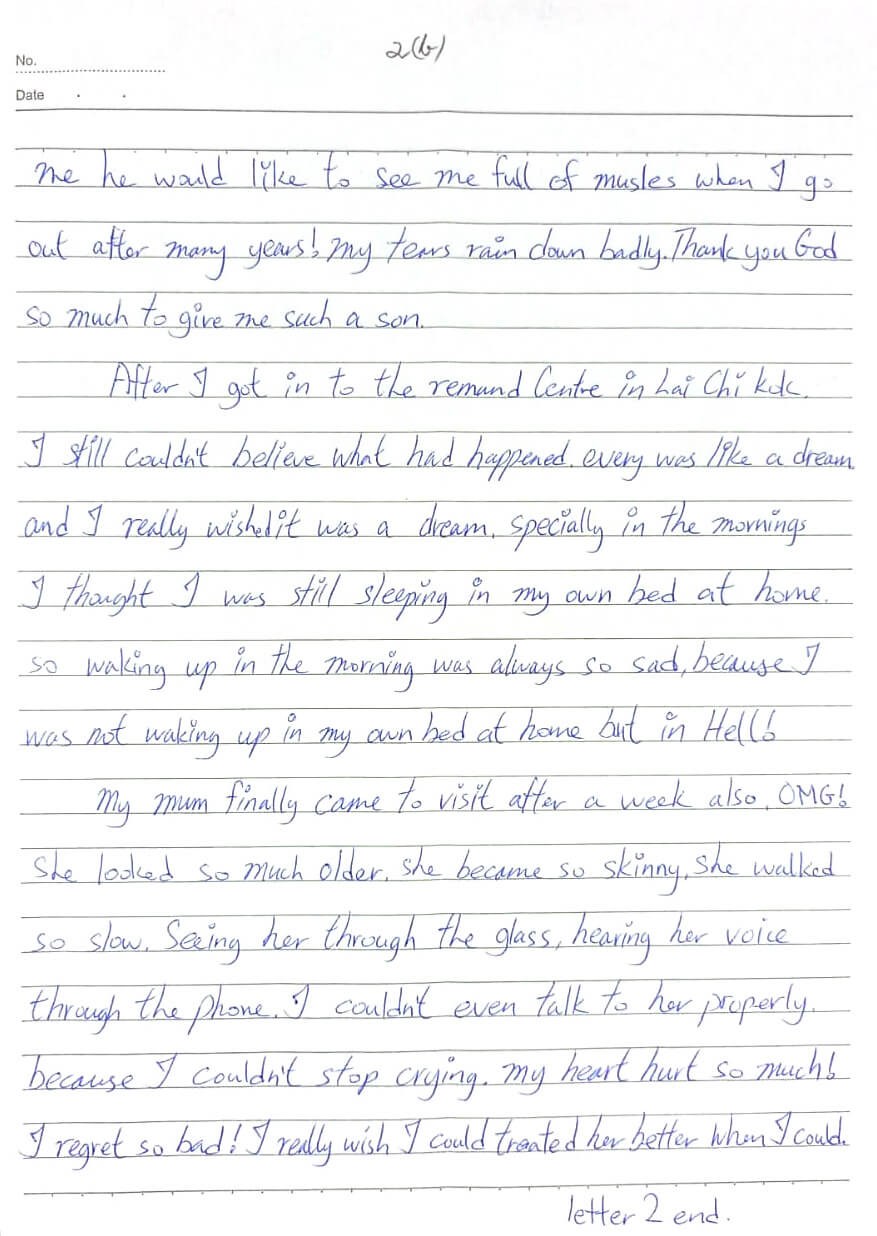 2(b)
No.
Date . .
me he would like to see me full of musles when I go
out after many years! my tears rain down badly. Thank you God
so much to give me such a son.
After I got in to the remand Centre in Lai Chi kok.
I still couldn't believe what had happened. every was like a dream
and I really wished it was a dream. specially in the mornings
I thought I was still sleeping in my own bed at home.
so waking up in the morning was always so sad, because I
was not waking up in my own bed at home but in Hell!
My mum finally came to visit after a week also. OMG!
She looked so much older. she became so skinny, she walked
so slow. Seeing her through the glass, hearing her voice
through the phone. I couldn't even talk to her properly.
because I couldn't stop crying. my heart hurt so much!
I regret so bad! I really wish I could treated her better when I could.
letter 2 end.